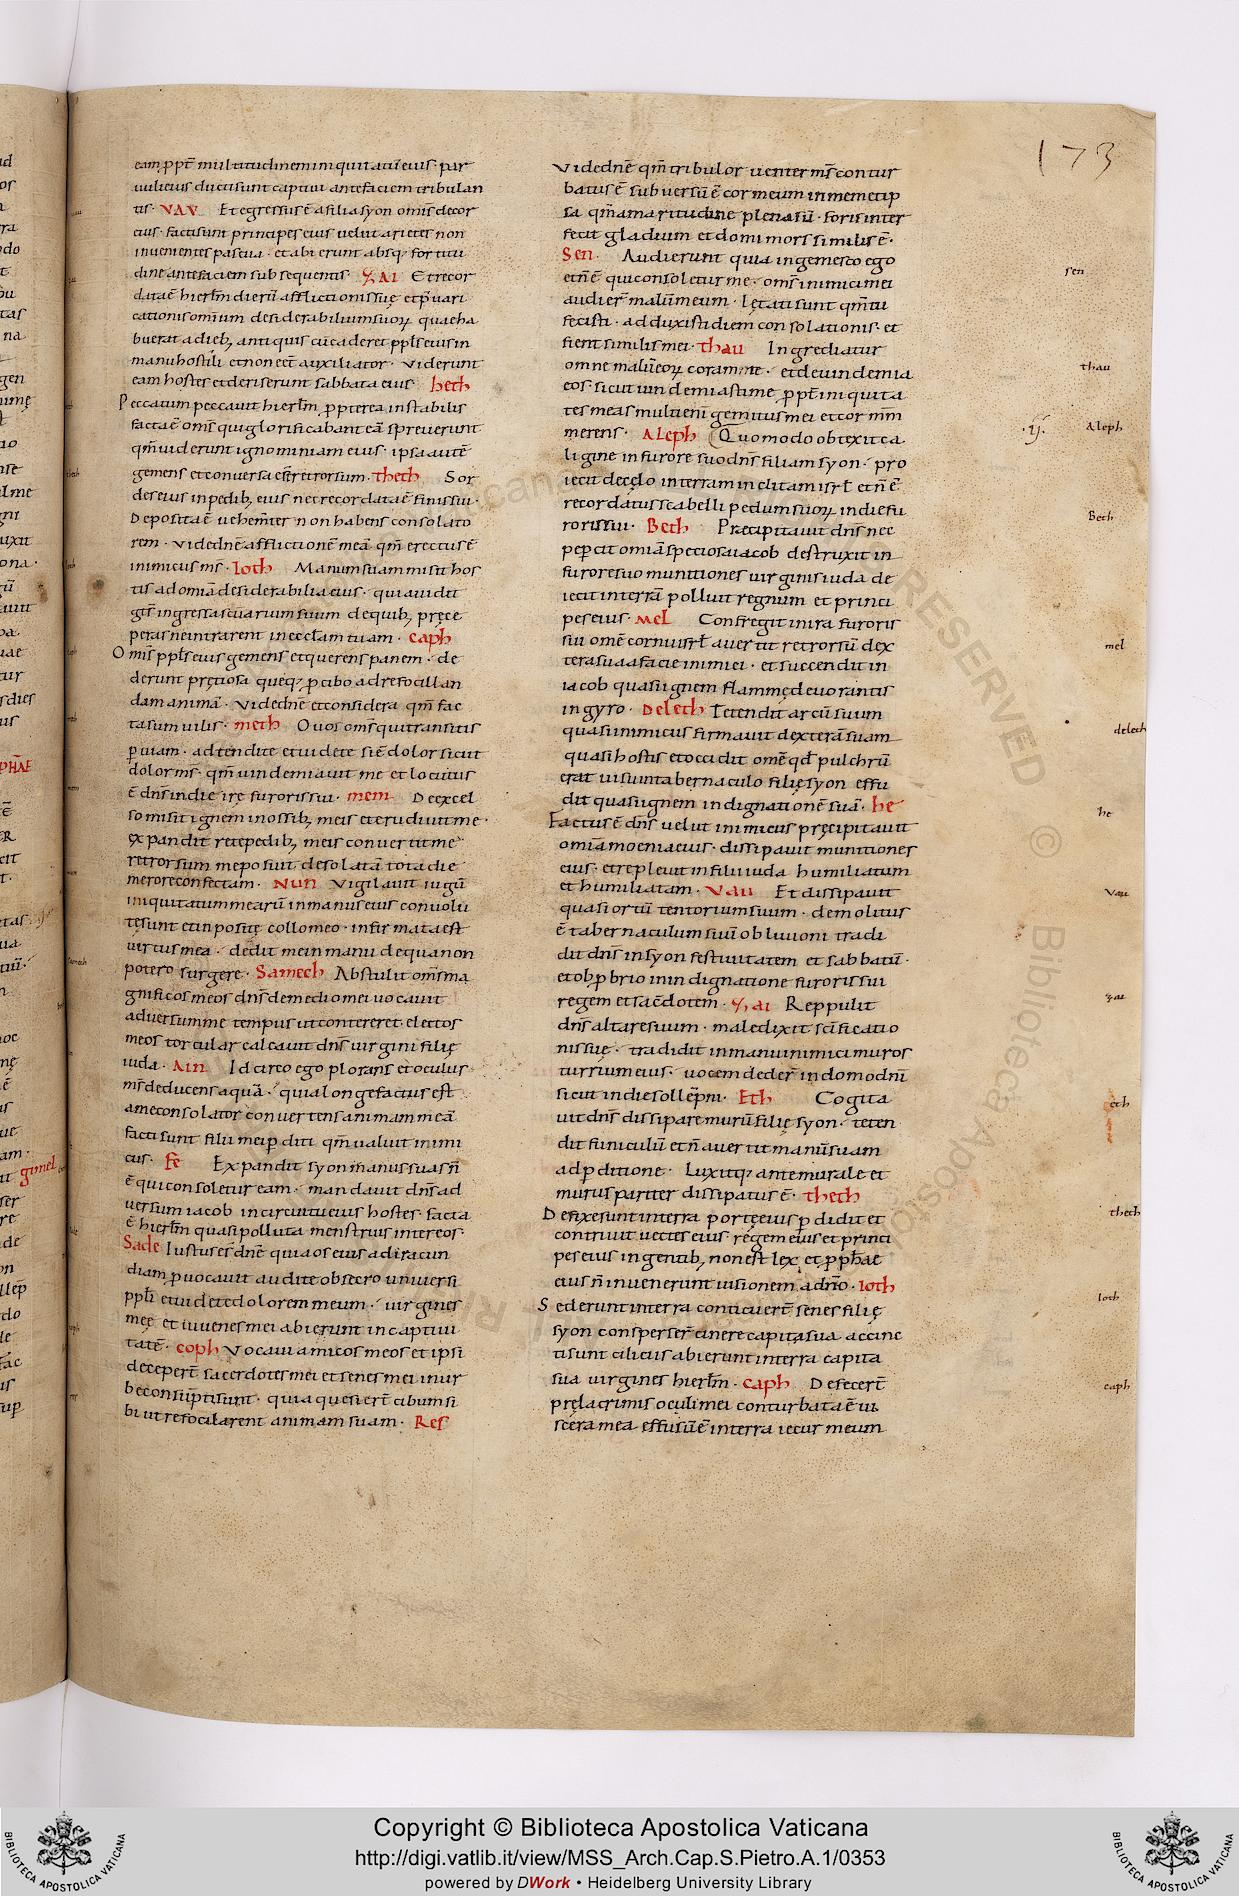 173
eam ꝓpt̄ multitudinem iniquitatū eius · par
uuli eius ducti sunt captiui ante faciem tribulan
tis · VAV Et egressus ē a filia syon omīs decor
eius · facti sunt principes eius uelut arietes non
inuenientes pascua · et abierunt absq; fortitu
dine ante faciem subsequentis · ZAI Et recor
data ē hierl̄m dierū afflictionis suę et p̄uari
cationis omīum desiderabilium suoꝝ quae ha
buerat a dieb; antiquis cū caderet ppl̄s eius in
manu hostili et non eēt auxiliator · Viderunt
eam hostes et deriserunt sabbata eius heth
Peccatum peccauit hierl̄m ꝓpterea instabilis
facta ē omīs qui glorificabant eā spreuerunt
qm̄ uiderunt ignominiam eius · ipsa autē
gemens et conuersa est retrorsum · theth Sor
des eius in pedib; eius nec recordata ē finis sui ·
Deposita ē uehemīter non habens consolato
rem · Vide dn̄e afflictionē meā qm̄ erectus ē
inimicus m̄s · Ioth Manum suam misit hos
tis ad omīa desiderabilia eius · quia uidit
gīts ingressas sc̄uarium suum de quib; pręce
peras ne intrarent in ecclam tuam · caph
Omīs ppl̄s eius gemens et querens panem · de
derunt prętiosa queq; ꝓ cibo ad refocillan
dam animā · Vide dn̄e et considera qm̄ fac
ta sum uilis · meth O uos omīs qui transitis
ꝑ uiam · adtendite et uidete si ē dolor sicut
dolor m̄s · qm̄ uindemiauit me et locutus
ē dn̄s in die irę furoris sui · mem De excel
so misit ignem in ossib; meis et erudiuit me ·
expandit rete pedib; meis conuertit me
retrorsum me posuit desolatā tota die
merore confectam · Nun Vigilauit iugū
iniquitatum mearū in manu eius conuolu
tę sunt et inpositę collo meo · infirmata est
uirtus mea · dedit me in manu de qua non
potero surgere · Samech Abstulit omīs ma
gnificos meos dn̄s de medio mei uocauit
aduersum me tempus ut contereret electos
meos torcular calcauit dn̄s uirgini filię
iuda · Ain Idcirco ego plorans et oculus
m̄s deducens aquā · quia longe factus est
a me consolator conuertens animam meā
facti sunt filii mei ꝑditi qm̄ ualuit inimi
cus · Fe Expandit syon manus suas n̄
ē qui consoletur eam · mandauit dn̄s ad
uersum iacob in circuitu eius hostes · facta
ē hierl̄m quasi polluta menstruis inter eos ·
Sade Iustus es dn̄e quia os eius ad iracun
diam ꝓuocaui audite obsecro uniuersi
ppl̄i et uidete dolorem meum · uirgines
meę et iuuenes mei abierunt in captiui
tatē · coph Vocaui amicos meos et ipsi
decepert̄ sacerdotes mei et senes mei in ur
be consūpti sunt · quia quesiert̄ cibum si
bi ut refocilarent animam suam · Res
Vide dn̄e qm̄ tribulor uenter m̄s contur
batus ē subuersū ē cor meum in memetip
sa qm̄ amaritudine plena sū · foris inter
fecit gladium et domi mors similis ē ·
Sen · Audierunt quia ingemesco ego
et n̄ ē qui consoletur me · omīs inimici mei
audiert̄ malū meum · lętati sunt qm̄ tu
fecisti · adduxisti diem consolationis · et
fient similis mei · thau Ingrediatur
omne malū eoꝝ coram te · et deuindemia
eos · sicut uindemiasti me ꝓpt̄ iniquita
tes meas multi enī gemitus mei et cor mm̄
merens · Aleph Quomodo obtexit ca
ligine in furore suo dn̄s filiam syon · pro
iecit de cęlo in terram inclitam isrl̄ et n̄ ē
recordatus scabelli pedum suoꝝ in die fu
roris sui · Beth Praecipitauit dn̄s nec
peꝑcit omīa speciosa iacob destruxit in
furore suo munitiones uirginis iuda de
iecit in terrā polluit regnum et princi
pes eius · mel Confregit in ira furoris
sui omē cornu isrl̄ auertit retrorsū dex
terā sua a facie inimici · et succendit in
iacob quasi ignem flammę deuorantis
in gyro · Deleth Tetendit arcū suum
quasi inimicus firmauit dexterā suam
quasi hostis et occidit omē qd̄ pulchrū
erat uisu in tabernaculo filię syon effu
dit quasi ignem indignationē suā · he
Factus ē dn̄s uelut inimicus pręcipitauit
omīa moenia eius · dissipauit munitiones
eius · et repleuit in filiu iuda humiliatum
et humiliatam · Vau Et dissipauit
quasi ortū tentorium suum · demolitus
ē tabernaculum suū obliuioni tradi
dit dn̄s in syon festiuitatem et sabbatū ·
et obꝓbrio in indignatione furoris sui
regem et sacēdotem · Zai Reppulit
dn̄s altare suum · maledixit sc̄ificatio
ni suę · tradidit in manu inimici muros
turrium eius · uocem dedert̄ in domo dn̄i
sicut in die sollēpni · Eth Cogita
uit dn̄s dissipare murū filię syon · teten
dit funiculū et n̄ auertit manū suam
a ꝑditione · Luxitq; antemurale et
murus pariter dissipatus ē · theth
Defixe sunt in terra portę eius ꝑdidit et
contriuit uectes eius · regem eius et princi
pes eius in gentib; non est lex et prophae
eius n̄ inuenerunt uisionem a dn̄o · Ioth
Sederunt in terra conticuert̄ senes filię
syon consperser̄ cinere capita sua accinc
ti sunt ciliciis abierunt in terra capita
sua uirgines hierl̄m · caph Defecert̄
prę lacrimis oculi mei conturbata ē ui
scera mea effusū ē in terra iecur meum
sen
thau
·ij· Aleph
Beth
mel
delech
he
Vau
zai
eth
theth
Ioth
caph
gimel
Copyright © Biblioteca Apostolica Vaticana
http://digi.vatlib.it/view/MSS_Arch.Cap.S.Pietro.A.1/0353
powered by DWork • Heidelberg University Library
BIBLIOTECA APOSTOLICA VATICANA
BIBLIOTECA APOSTOLICA VATICANA